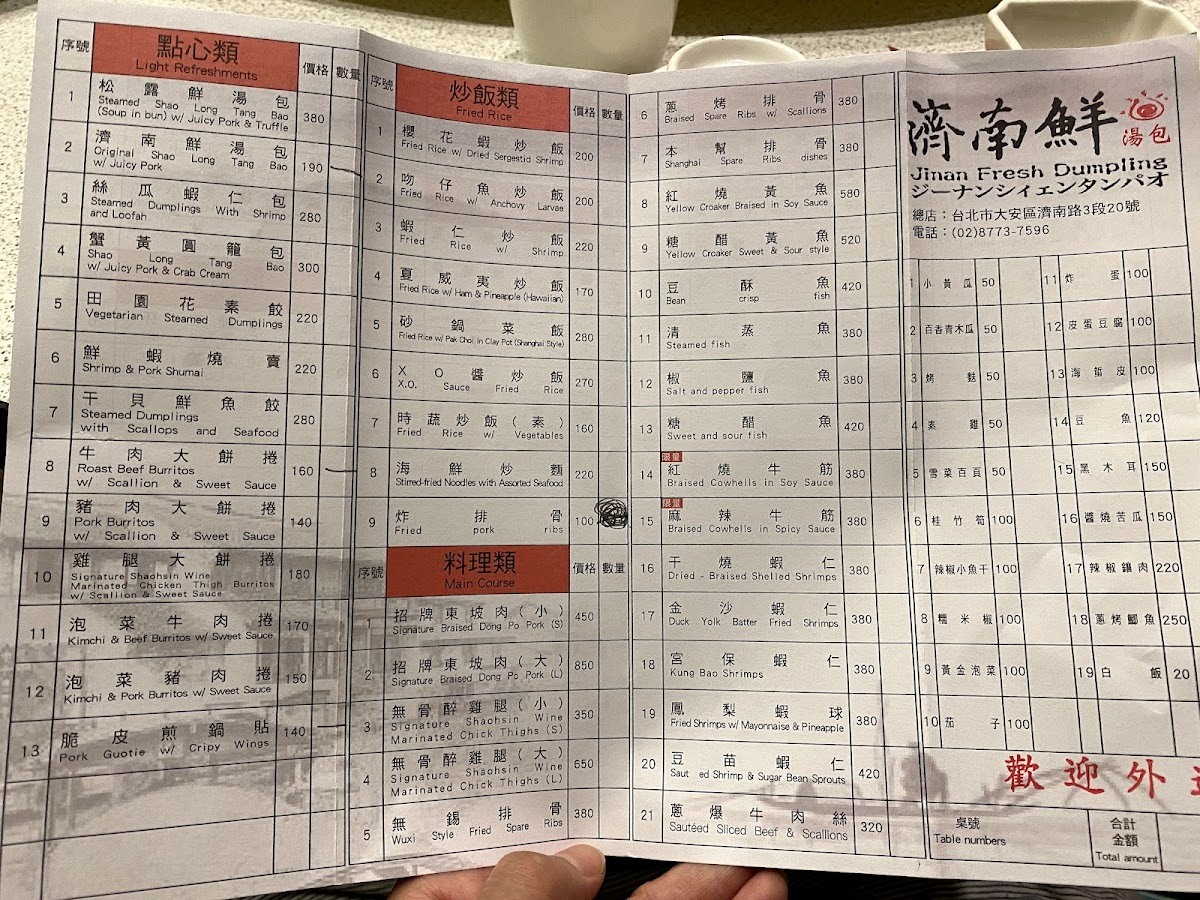 序號 點心類 Light Refreshments 價格 數量
1 松露鮮湯包 380
Steamed Shao Long Tang Bao
(Soup in bun) w/ Juicy Pork & Truffle
2 濟南鮮湯包 190
Original Shao Long Tang Bao
w/ Juicy Pork
3 絲瓜蝦仁包 280
Steamed Dumplings With Shrimp
and Loofah
4 蟹黃圓籠包 300
Shao Long Tang Bao
w/ Juicy Pork & Crab Cream
5 田園花素餃 220
Vegetarian Steamed Dumplings
6 鮮蝦燒賣 220
Shrimp & Pork Shumai
7 干貝鮮魚餃 280
Steamed Dumplings
with Scallops and Seafood
8 牛肉大餅捲 160
Roast Beef Burritos
w/ Scallion & Sweet Sauce
9 豬肉大餅捲 140
Pork Burritos
w/ Scallion & Sweet Sauce
10 雞腿大餅捲 180
Signature Shaohsin Wine
Marinated Chicken Thigh Burritos
w/ Scallion & Sweet Sauce
11 泡菜牛肉捲 170
Kimchi & Beef Burritos w/ Sweet Sauce
12 泡菜豬肉捲 150
Kimchi & Pork Burritos w/ Sweet Sauce
13 脆皮煎鍋貼 140
Pork Guotie w/ Cripy Wings
序號 炒飯類 Fried Rice 價格 數量
1 櫻花蝦炒飯 200
Fried Rice w/ Dried Sergestid Shrimp
2 吻仔魚炒飯 200
Fried Rice w/ Anchovy Larvae
3 蝦仁炒飯 220
Fried Rice w/ Shrimp
4 夏威夷炒飯 170
Fried Rice w/ Ham & Pineapple (Hawaiian)
5 砂鍋菜飯 280
Fried Rice w/ Pak Choi in Clay Pot (Shanghai Style)
6 XO醬炒飯 270
X.O. Sauce Fried Rice
7 時蔬炒飯(素) 160
Fried Rice w/ Vegetables
8 海鮮炒麵 220
Stirred-fried Noodles with Assorted Seafood
9 炸排骨 100
Fried pork ribs
序號 料理類 Main Course 價格 數量
1 招牌東坡肉(小) 450
Signature Braised Dong Po Pork (S)
2 招牌東坡肉(大) 850
Signature Braised Dong Po Pork (L)
3 無骨醉雞腿(小) 350
Signature Shaohsin Wine
Marinated Chick Thighs (S)
4 無骨醉雞腿(大) 650
Signature Shaohsin Wine
Marinated Chick Thighs (L)
5 無錫排骨 380
Wuxi Style Fried Spare Ribs
6 蔥烤排骨 380
Braised Spare Ribs w/ Scallions
7 本幫排骨 380
Shanghai Spare Ribs dishes
8 紅燒黃魚 580
Yellow Croaker Braised in Soy Sauce
9 糖醋黃魚 520
Yellow Croaker Sweet & Sour style
10 豆酥魚 420
Bean crisp fish
11 清蒸魚 380
Steamed fish
12 椒鹽魚 380
Salt and pepper fish
13 糖醋魚 420
Sweet and sour fish
限量
14 紅燒牛筋 380
Braised Cowhells in Soy Sauce
限量
15 麻辣牛筋 380
Braised Cowhells in Spicy Sauce
16 干燒蝦仁 380
Dried - Braised Shelled Shrimps
17 金沙蝦仁 380
Duck Yolk Batter Fried Shrimps
18 宮保蝦仁 380
Kung Bao Shrimps
19 鳳梨蝦球 380
Fried Shrimps w/ Mayonnaise & Pineapple
20 豆苗蝦仁 420
Saut ed Shrimp & Sugar Bean Sprouts
21 蔥爆牛肉絲 320
Sautéed Sliced Beef & Scallions
濟南鮮 湯包
Jinan Fresh Dumpling
ジーナンシィェンタンパオ
總店：台北市大安區濟南路3段20號
電話：(02)8773-7596
1 小黃瓜 50
2 百香青木瓜 50
3 烤麩 50
4 素雞 50
5 雪菜百頁 50
6 桂竹筍 100
7 辣椒小魚干 100
8 糯米椒 100
9 黃金泡菜 100
10 茄子 100
11 炸蛋 100
12 皮蛋豆腐 100
13 海蜇皮 100
14 豆魚 120
15 黑木耳 150
16 醬燒苦瓜 150
17 辣椒鑲肉 220
18 蔥烤鯽魚 250
19 白飯 20
歡迎外
桌號
Table numbers
合計
金額
Total amount